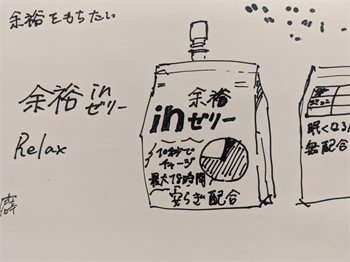 余裕をもちたい
余裕 in
ゼリー
Relax
余裕
in ゼリー
10秒で
チャージ
最大78時間
安らぎ配合
眠くなる
無配合